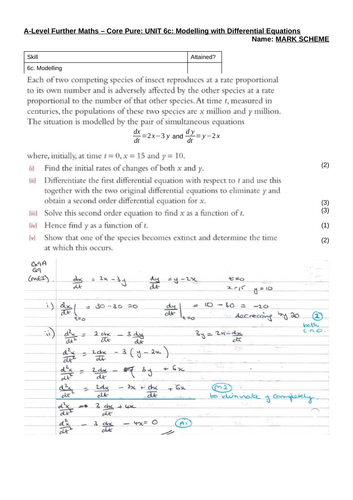 A-Level Further Maths – Core Pure: UNIT 6c: Modelling with Differential Equations
Name: MARK SCHEME
Skill Attained?
6c. Modelling
Each of two competing species of insect reproduces at a rate proportional
to its own number and is adversely affected by the other species at a rate
proportional to the number of that other species. At time t, measured in
centuries, the populations of these two species are x million and y million.
The situation is modelled by the pair of simultaneous equations
dx/dt=2x−3y and dy/dt=y−2x
where, initially, at time t = 0, x = 15 and y = 10.
(i) Find the initial rates of changes of both x and y. (2)
(ii) Differentiate the first differential equation with respect to t and use this
together with the two original differential equations to eliminate y and
obtain a second order differential equation for x. (3)
(iii) Solve this second order equation to find x as a function of t. (3)
(iv) Hence find y as a function of t. (1)
(v) Show that one of the species becomes extinct and determine the time
at which this occurs. (2)
Q9
dx/dt = 2x - 3y dy/dt = y - 2x t=0
x=15 y=10
i) dx/dt | t=0 = 30 - 30 = 0 dy/dt | t=0 = 10 - 30 = -20
decreasing by 20 2
both
ii) d²x/dt² = 2dx/dt - 3dy/dt 3y = 2x - dx/dt
d²x/dt² = 2dx/dt - 3(y - 2x)
d²x/dt² = 2dx/dt - 3y + 6x
d²x/dt² = 2dx/dt - 2x + dx/dt + 6x M2
to eliminate y completely.
d²x/dt² = 3dx/dt + 4x
d²x/dt² - 3dx/dt - 4x = 0 A1